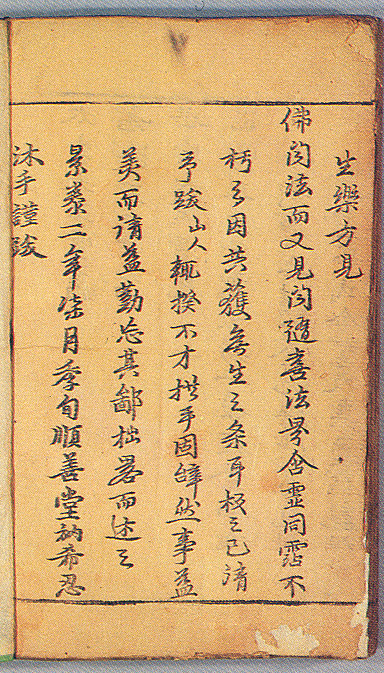 生樂方見
佛闻法而又見闻隨喜法界含靈同霑不
朽之因共獲無生之条耳板之已清
予跋山人輒揆不才拱手固辭然事益
美而請益勤忘其鄙拙畧而述之
景泰二年柒月季旬順善堂衲希忍
沐手謹跋